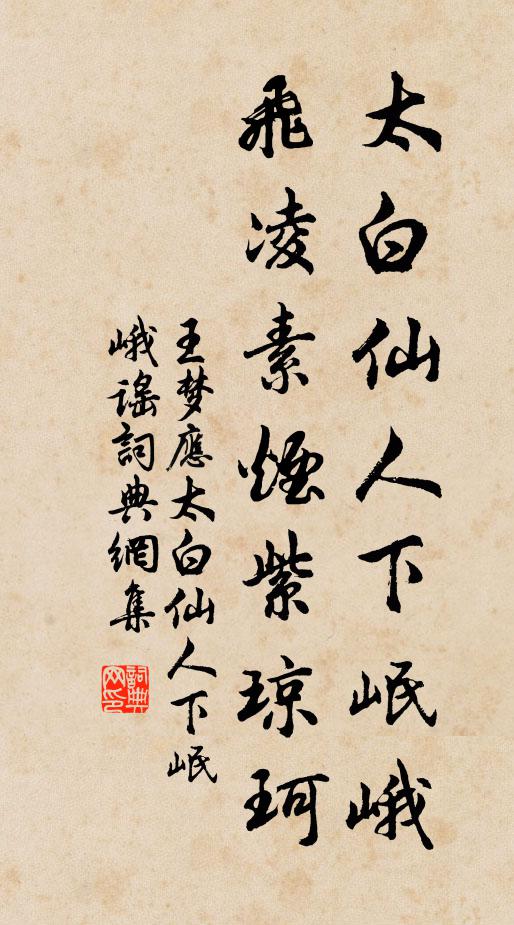 太白仙人下岷峨
飛凌素煙紫琼珂
王梦應太白仙人下岷
峨謠詞典網集
詞典
网印